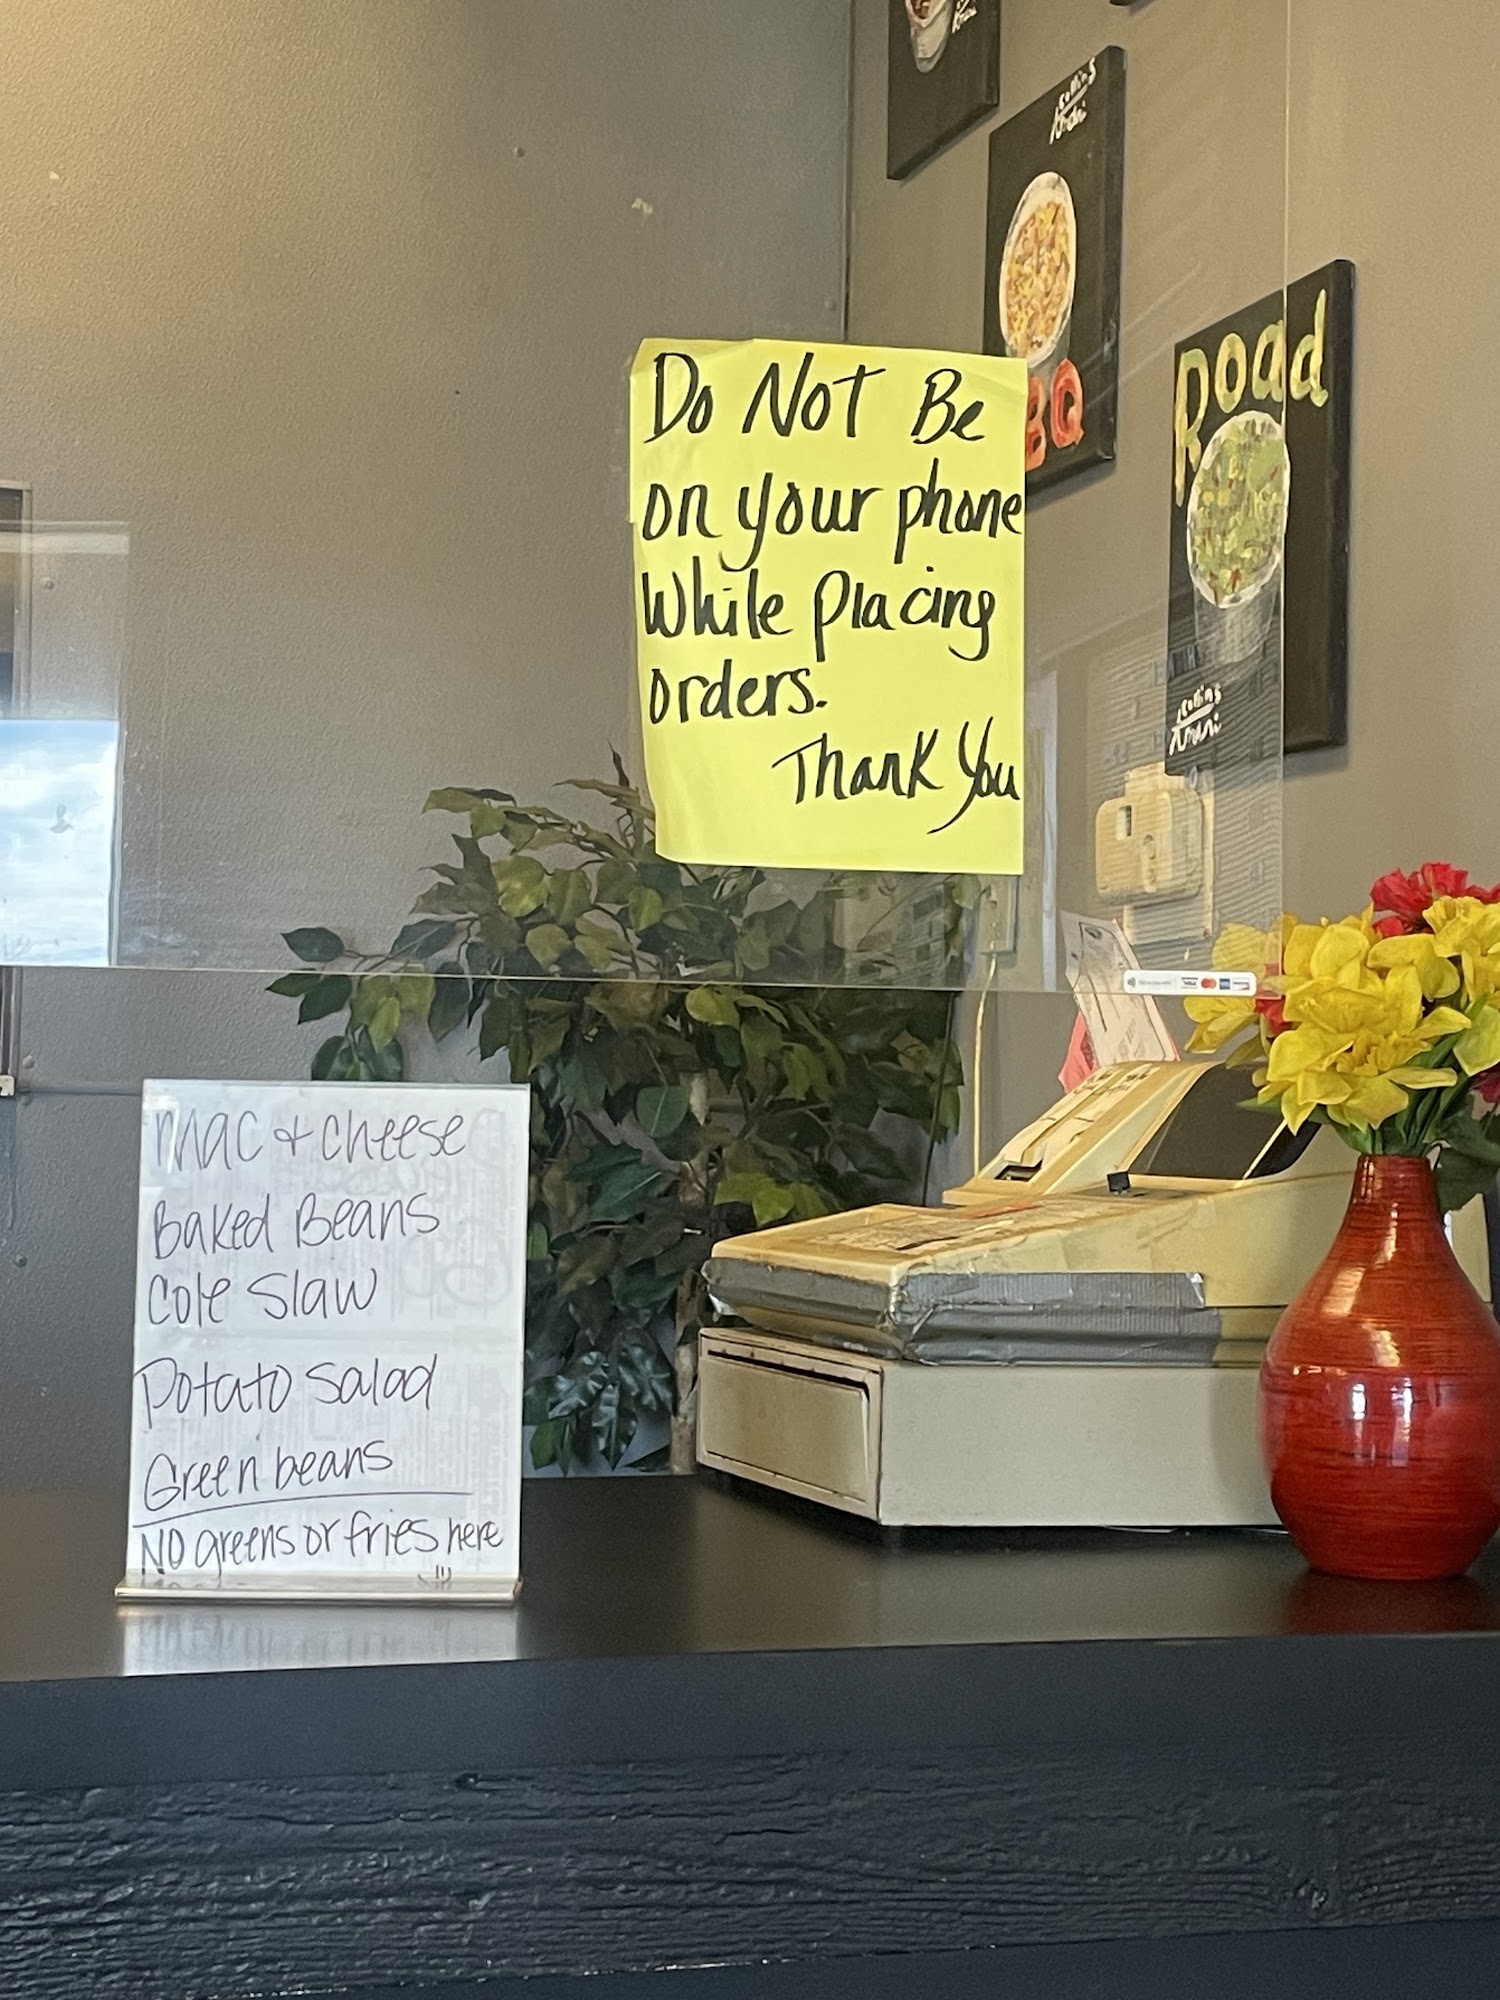 Do Not Be
on your phone
While placing
orders.
Thank You
Mac + cheese
Baked Beans
Cole Slaw
Potato Salad
Green beans
NO greens or fries here
BQ
Road
Collins
Collins
VISA